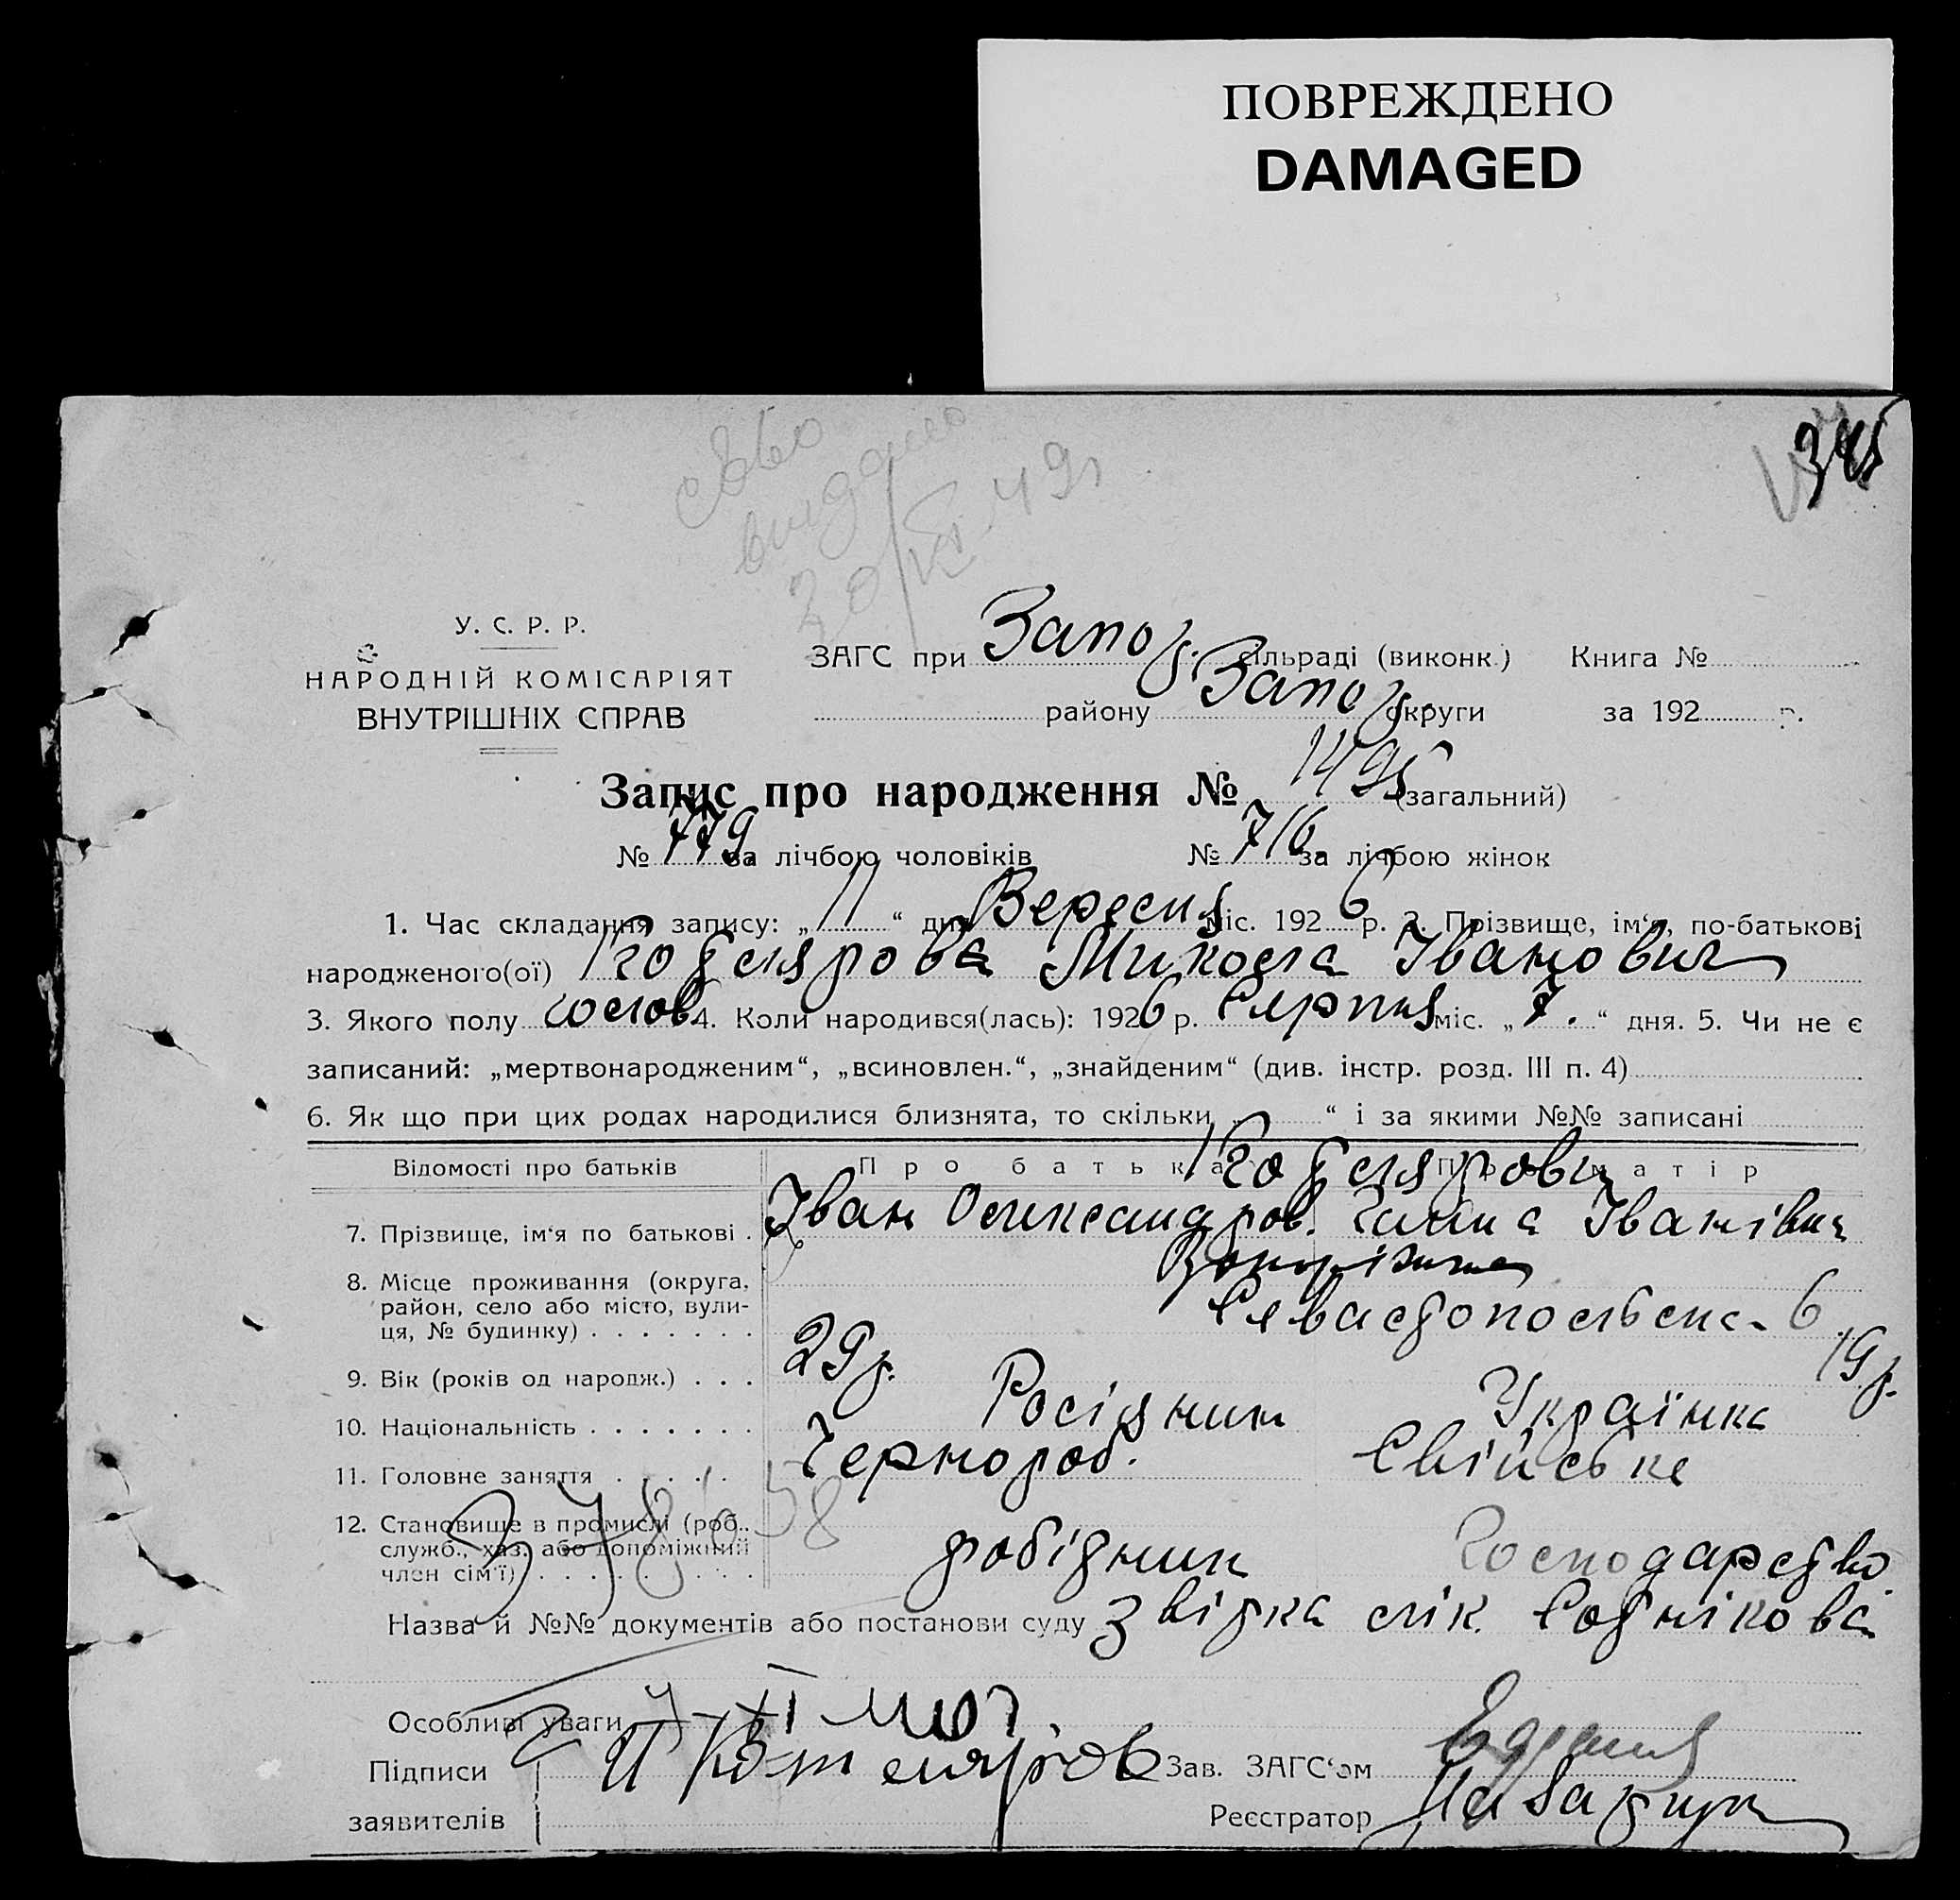 ПОВРЕЖДЕНО
DAMAGED
345
У. С. Р. Р.
НАРОДНІЙ КОМІСАРІЯТ
ВНУТРІШНІХ СПРАВ
ЗАГС при Запоз. сільраді (виконк.) Книга №
району Запоз. округи за 192 р.
Запис про народження № 1495 (загальний)
№ 779 за лічбою чоловіків № 716 за лічбою жінок
1. Час складання запису: „ 11 “ дня Вересня міс. 1926 р. 2. Прізвище, ім‘я, по-батькові
народженого(ої) Котлярова Микола Іванович
3. Якого полу 4. Коли народився(лась): 1926 р. Серпня міс. „ 7. “ дня. 5. Чи не є
записаний: „мертвонародженим“, „всиновлен.“, „знайденим“ (див. інстр. розд. III п. 4)
6. Як що при цих родах народилися близнята, то скільки „ “ і за якими №№ записані
Відомості про батьків Про батька Про матір
Котлярови
7. Прізвище, ім‘я по батькові . Іван Олександров. Галина Іванівна
8. Місце проживання (округа, район, село або місто, вулиця, № будинку) . . . . . . .
Запоріжжя
Севастопольська 6
9. Вік (років од народж.) . . . 29 р. 19 р.
10. Національність . . . . . . . Росіянин Українка
11. Головне заняття . . . . . Чернороб. Свійське
12. Становище в промислі (роб., служб., хаз. або допоміжний член сім‘ї) . . . . . . . . робідник господарство
Назва й №№ документів або постанови суду Звідка лік. Сотнікова
Особливі уваги
Підписи И Котляров Зав. ЗАГС‘ом
заявителів Реєстратор